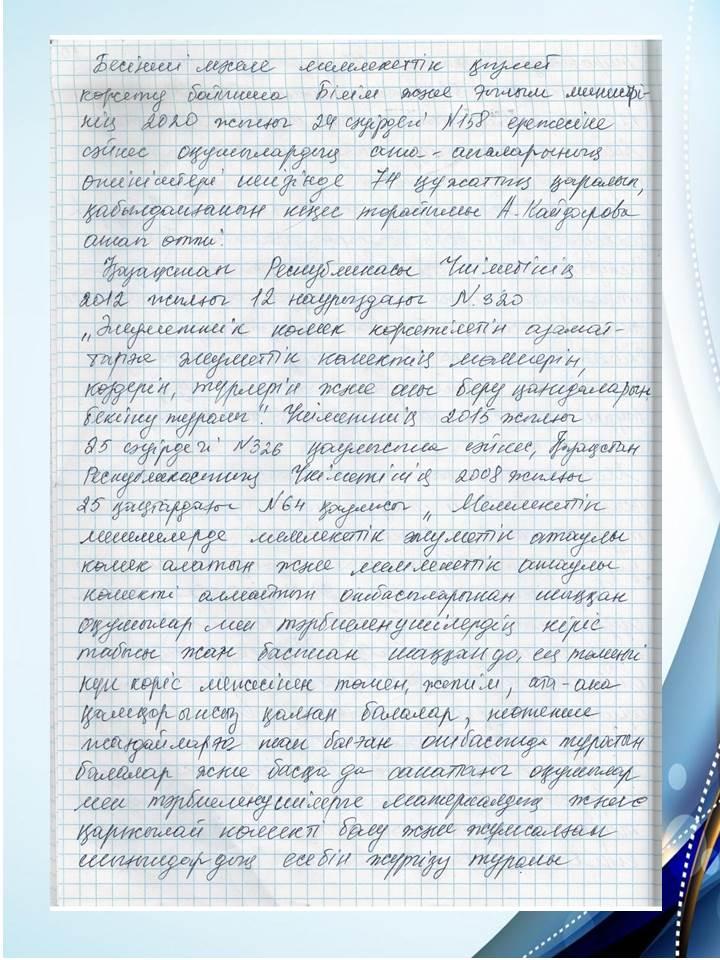 Бесінші мәселе мемлекеттік қызмет
көрсету бойынша Білім және ғылым министрі-
нің 2020 жылғы 24 сәуірдегі №158 ережесіне
сәйкес оқушылардың ата-аналарының
өтініштері негізінде 74 құжаттың қаралып,
қабылданғанын кеңес төрайымы А.Кайдарова
атап өтті.
Қазақстан Республикасы Үкіметінің
2012 жылғы 12 наурыздағы №320
„Әлеуметтік көмек көрсетілетін азамат-
тарға әлеуметтік көмектің мөлшерін,
көздерін, түрлерін және оны беру қағидаларын
бекіту туралы". Үкіметтің 2015 жылғы
25 сәуірдегі №326 қаулысына сәйкес, Қазақстан
Республикасының Үкіметінің 2008 жылғы
25 қаңтардағы №64 қаулысы „Мемлекеттік
мекемелерде мемлекеттік әлеуметтік атаулы
көмек алатын және мемлекеттік атаулы
көмекті алмайтын отбасыларынан шыққан
оқушылар мен тәрбиеленушілердің кіріс
табысы жан басынан шаққанда, ең төменгі
күн көріс межесінен төмен, жетім, ата-ана
қамқорынсыз қалған балалар, төтенше
жағдайларға тап болған отбасында тұратын
балалар және басқа да санаттағы оқушылар
мен тәрбиеленушілерге материалдық және
қаржылай көмекті бөлу және жұмсалған
шығындардың есебін жүргізу туралы